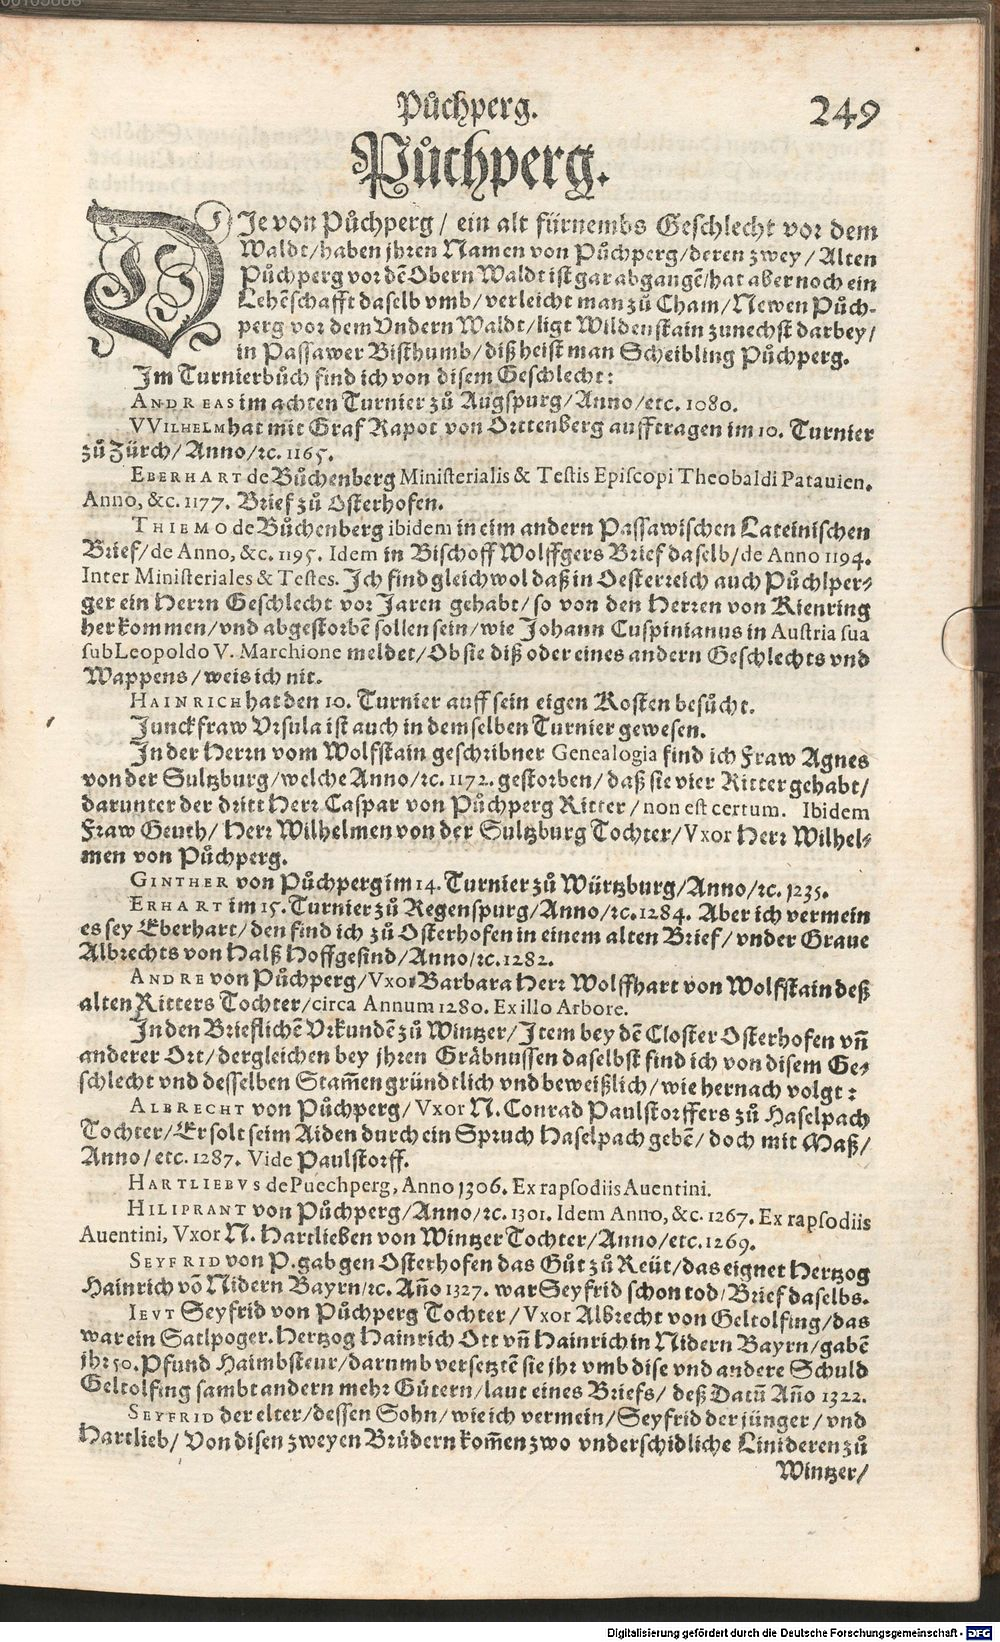 Půchperg. 249
Půchperg.
DIe von Půchperg / ein alt fürnembs Geschlecht vor dem
Waldt / haben jhren Namen von Půchperg / deren zwey / Alten
Půchperg vor dē Obern Waldt ist gar abgangē / hat aber noch ein
Lehēschafft daselb vmb / verleicht man zů Cham / Newen Půch-
perg vor dem Vndern Waldt / ligt Wildenstain zunechst darbey /
in Passawer Bisthumb / diß heist man Scheibling Půchperg.
Im Turnierbůch find ich von disem Geschlecht:
ANDREAS im achten Turnier zů Augspurg / Anno / etc. 1080.
VVILHELM hat mit Graf Rapot von Orttenberg aufftragen im 10. Turnier
zů Zürch / Anno / ꝛc. 1165.
EBERHART de Bůchenberg Ministerialis & Testis Episcopi Theobaldi Patauien.
Anno, &c. 1177. Brief zů Osterhofen.
THIEMO de Bůchenberg ibidem in eim andern Passawischen Lateinischen
Brief / de Anno, &c. 1195. Idem in Bischoff Wolffgers Brief daselb / de Anno 1194.
Inter Ministeriales & Testes. Ich find gleichwol daß in Oesterreich auch Půchlper-
ger ein Herrn Geschlecht vor Jaren gehabt / so von den Herren von Kienring
herkommen / vnd abgestorbē sollen sein / wie Johann Cuspinianus in Austria sua
sub Leopoldo V. Marchione meldet / Ob sie diß oder eines andern Geschlechts vnd
Wappens / weis ich nit.
HAINRICH hat den 10. Turnier auff sein eigen Kosten besůcht.
Junckfraw Vrsula ist auch in demselben Turnier gewesen.
In der Herrn vom Wolfstain geschribner Genealogia find ich Fraw Agnes
von der Sultzburg / welche Anno / ꝛc. 1172. gestorben / daß sie vier Ritter gehabt /
darunter der dritt Herr Caspar von Půchperg Ritter / non est certum. Ibidem
Fraw Geuth / Herr Wilhelmen von der Sultzburg Tochter / Vxor Herr Wilhel-
men von Půchperg.
GINTHER von Půchperg im 14. Turnier zů Würtzburg / Anno / ꝛc. 1235.
ERHART im 15. Turnier zů Regenspurg / Anno / ꝛc. 1284. Aber ich vermein
es sey Eberhart / den find ich zů Osterhofen in einem alten Brief / vnder Graue
Albrechts von Halß Hoffgesind / Anno / ꝛc. 1282.
ANDRE von Půchperg / Vxor Barbara Herr Wolffhart von Wolfstain deß
alten Ritters Tochter / circa Annum 1280. Ex illo Arbore.
In den Brieflichē Vrkundē zů Wintzer / Item bey dē Closter Osterhofen vn̄
anderer Ort / dergleichen bey jhren Gräbnussen daselbst find ich von disem Ge-
schlecht vnd desselben Stam̄en gründtlich vnd beweißlich / wie hernach volgt:
ALBRECHT von Půchperg / Vxor N. Conrad Paulstorffers zů Haselpach
Tochter / Er solt seim Aiden durch ein Spruch Haselpach gebē / doch mit Maß /
Anno / etc. 1287. Vide Paulstorff.
HARTLIEBVS de Puechperg, Anno 1306. Ex rapsodiis Auentini.
HILIPRANT von Půchperg / Anno / ꝛc. 1301. Idem Anno, &c. 1267. Ex rapsodiis
Auentini, Vxor N. Hartlieben von Wintzer Tochter / Anno / etc. 1269.
SEYFRID von P. gab gen Osterhofen das Gůt zů Reüt / das eignet Hertzog
Hainrich vō Nidern Bayrn / ꝛc. An̄o 1327. war Seyfrid schon tod / Brief daselbs.
IEVT Seyfrid von Půchperg Tochter / Vxor Albrecht von Geltolfing / das
war ein Satlpoger. Hertzog Hainrich Ott vn̄ Hainrich in Nidern Bayrn / gabē
jhr 50. Pfund Haimbsteur / darumb versetztē sie jhr vmb dise vnd andere Schuld
Geltolfing sambt andern mehr Gütern / laut eines Briefs / deß Datū An̄o 1322.
SEYFRID der elter / dessen Sohn / wie ich vermein / Seyfrid der jünger / vnd
Hartlieb / Von disen zweyen Brüdern kom̄en zwo vnderschidliche Lini deren zů
Wintzer /
Digitalisierung gefördert durch die Deutsche Forschungsgemeinschaft - DFG